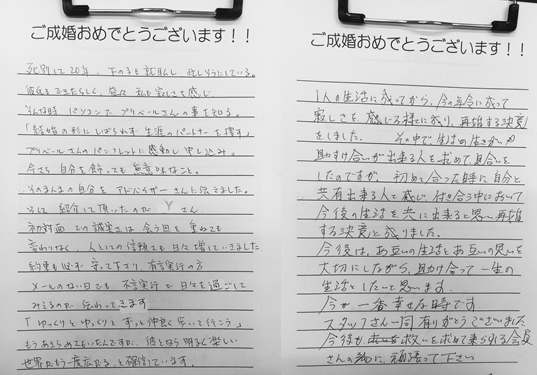 ご成婚おめでとうございます！！
死別して20年、下の子も就職し 忙しそうにしている。
彼氏もできたらしく、段々 私も寂しさを感じ
そんな時 パソコンで ブリベールさんの事を知る。
「結婚の形にしばられず 生涯のパートナーを探す」
ブリベールさんのパンフレットに感動し 申し込み。
今さら 自分を飾っても 無意味なこと。
そのまんまの自分を アドバイザーさんに伝えました。
そして 紹介して頂いたのが Yさん
初対面での誠実さは 会う回を重ねても
変わりなく 人としての信頼も日々増していきました
約束も必ず 守って下さり 有言実行の方
メールのない日でも 不言実行で 日々を過ごして
みえるのが 伝わってきます
「ゆっくりとゆっくりと ずっと仲良く歩いて行こう」
もうあきらめてもいたんですが、彼となら 明るく楽しい
世界がもう一度広がる、と確信しています。
ご成婚おめでとうございます！！
1人の生活に成ってから、今の年令に成って
寂しさを感じる様に成り、再婚する決意
をしました。 その中で生活の生きがいや
助すけ合いが出来る人を求めて見合いを
したのですが、初めて会った時に自分と
共有出来る人と感じ 付き合う中において
今後の生活を共に出来ると思い再婚
する決意と成りました。
今後は、お互いの生活とお互いの思いを
大切にしながら、助け合って一生の
生活としたいと思います。
今が一番幸せな時です
スタッフさん一同有りがとうございました
今後も 救いを求めて来られる会員
さんの為に頑張って下さい